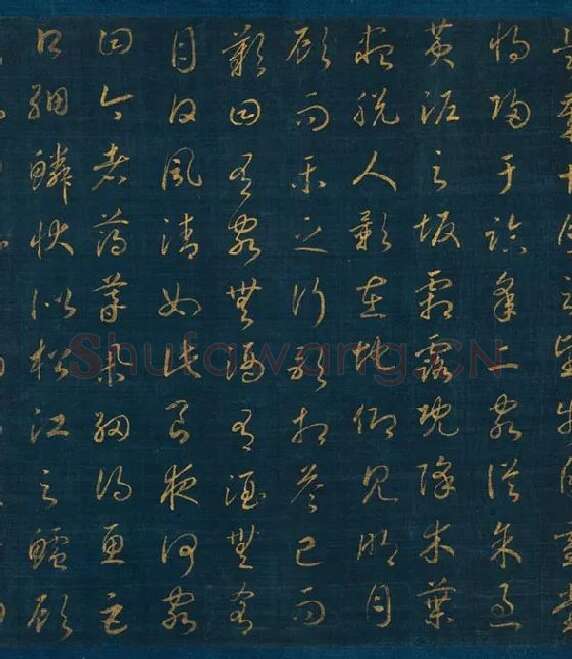 是歲十月之望步自雪堂
將歸于臨皋二客從余過
黃泥之坂霜露既降木葉
盡脫人影在地仰見明月
顧而樂之行歌相答已而
歎曰有客無酒有酒無肴
月白風清如此良夜何客
曰今者薄暮舉網得魚巨
口細鱗狀似松江之鱸顧
Shufawang.CN